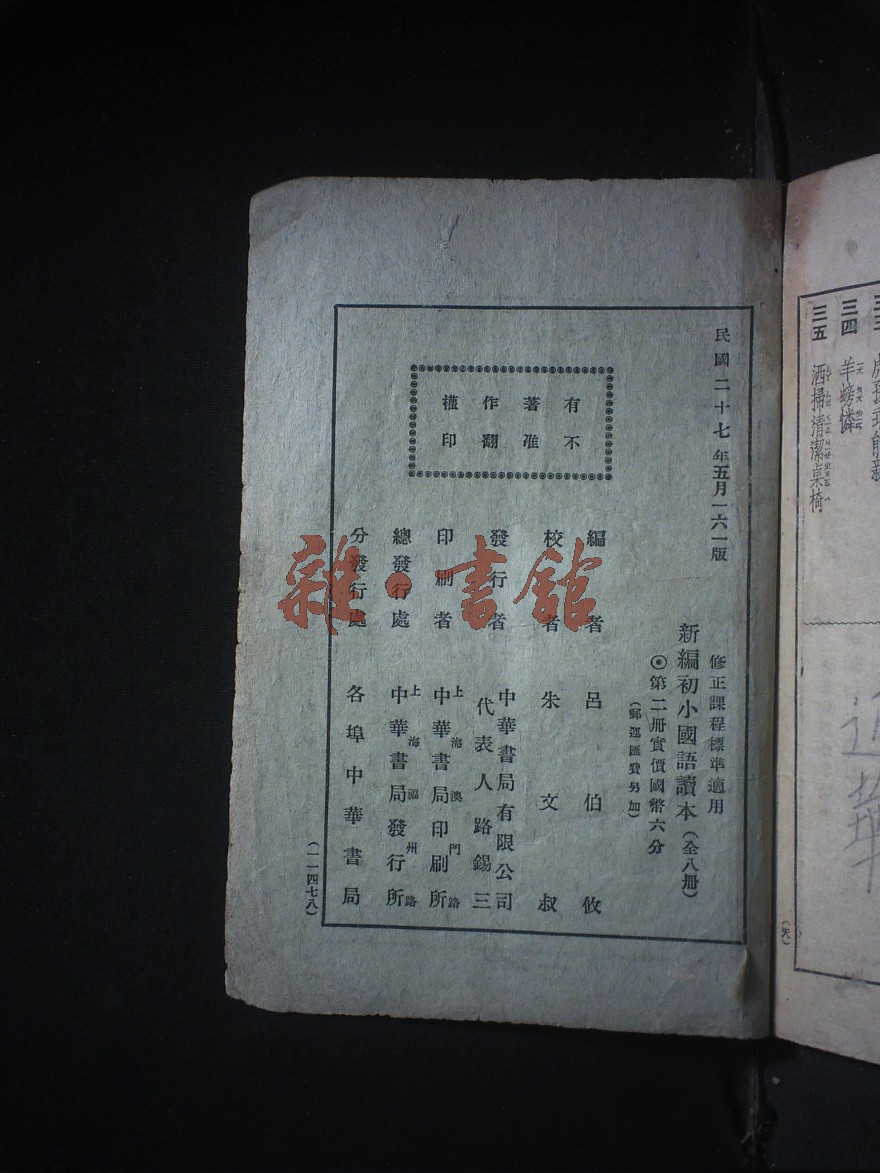 三四 羊螃憐
三五 洒掃清潔桌椅
民國二十七年五月一六一版
有著作權
不准翻印
修正課程標準適用
新編初小國語讀本(全八册)
◎第二册實價國幣六分
(郵運匯費另加)
編者 呂伯攸
校者 朱文叔
發行者 中華書局有限公司
代表人路錫三
印刷者 上海澳門路
中華書局印刷所
總發行處 上海福州路
中華書局發行所
分發行處 各埠中華書局
(一一四七八)
雜·書館